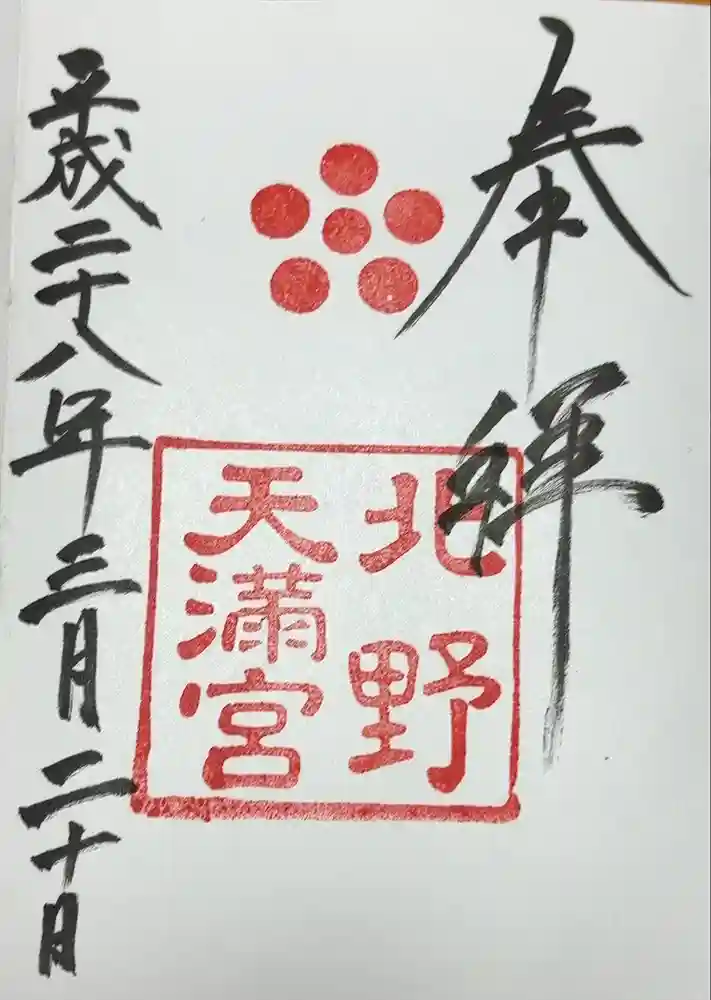 奉拜
北野
天満宮
平成二十八年三月二十日